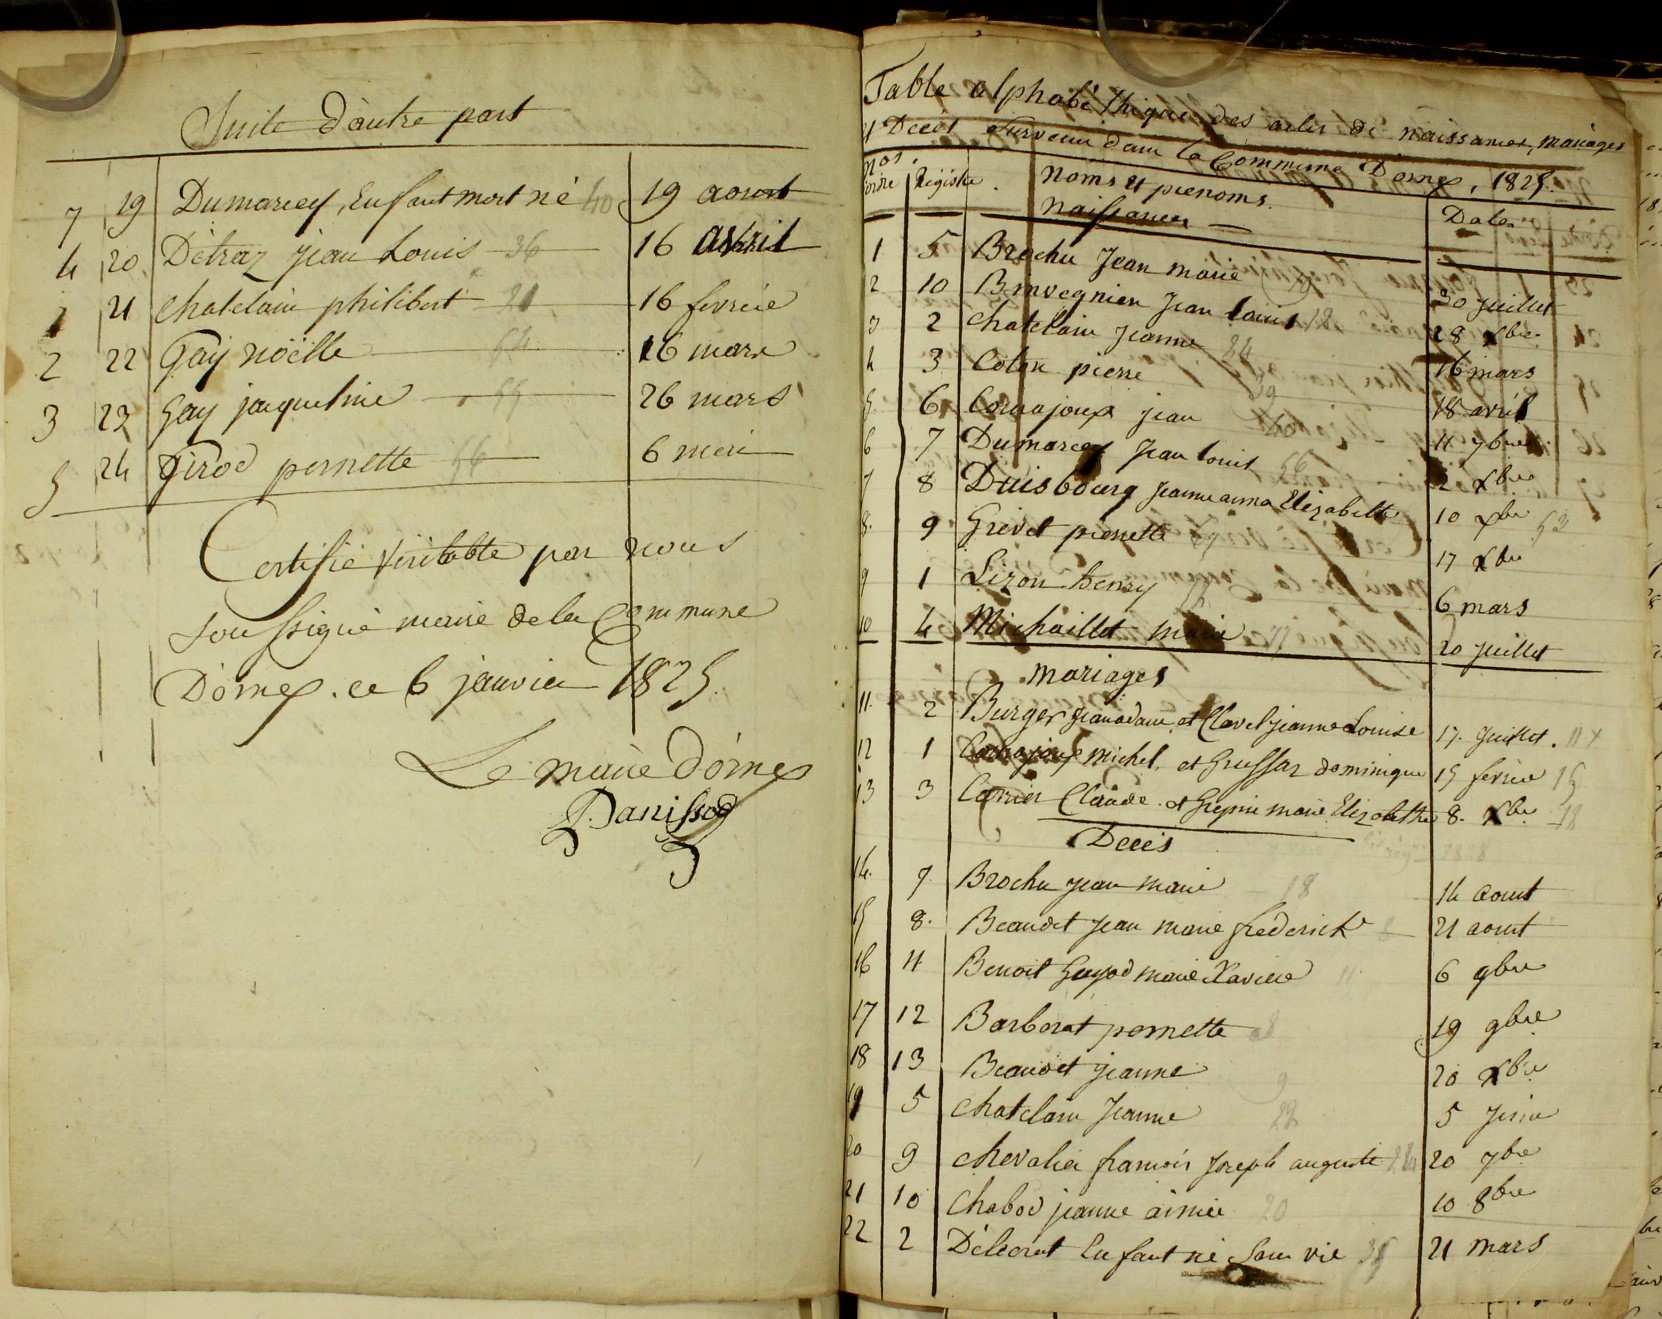 Suite d'autre part
7 19 Dumarcey, Enfant mort né 40 19 aoust
4 20 Détraz jean Louis 36 16 avril
1 21 Chatelain philibert 21 16 fevrier
2 22 Gay noëlle 54 16 mars
3 23 Gay jacqueline 26 mars
5 24 Girod pernette 56 6 mai
Certifié véritable par nous
soussigné maire de la Commune
D'ornex. ce 6 janvier 1825.
Le maire D'ornex
Panissod
Table alphabéthique des actes de naissances, mariages
et Décès survenu dans la Commune D'ornex, 1825.
nos. ordre Registre. Noms et prenoms. Dates
Naissances
1 5 Brochu Jean marie 30 juillet
2 10 Jean Louis 18 28 xbre
3 2 Chatelain Jeanne 24 16 mars
4 3 Colon pierre 18 avril
5 6 Courajoux jean 11 7bre
6 7 Dumarcey Jean Louis 56 2 xbre
7 8 Duisbourg Jeanne anna Elizabeth 10 xbre 53
8. 9 Grivet pernette 17 xbre
9 1 Lizon henry 6 mars
10 4 Michaillet marie 20 juillet
Mariages
11. 2 Burger jean adam et Clavel jeanne Louise 17. juillet. 11
12 1 Courajoux michel, et Grussaz dominique 15 fevrier 15
13 3 Carrier Claude. et marie Elizabeth 8. xbre 18
Décès
14. 7 Brochu jean marie 18 14 aoust
15 8. Beaudet Jean marie frederick 21 aoust
16 11 Benoit Guyod marie Xavière 11 6 9bre
17 12 Barborat pernette 8 19 9bre
18 13 Beaudet jeanne 9 20 xbre
19 5 Chatelain Jeanne 22 5 juin
20 9 Chevalier francois Joseph auguste 24 20 7bre
21 10 Chabod jeanne aimée 20 10 8bre
22 2 Délécrat Enfant né sans vie 35 21 mars